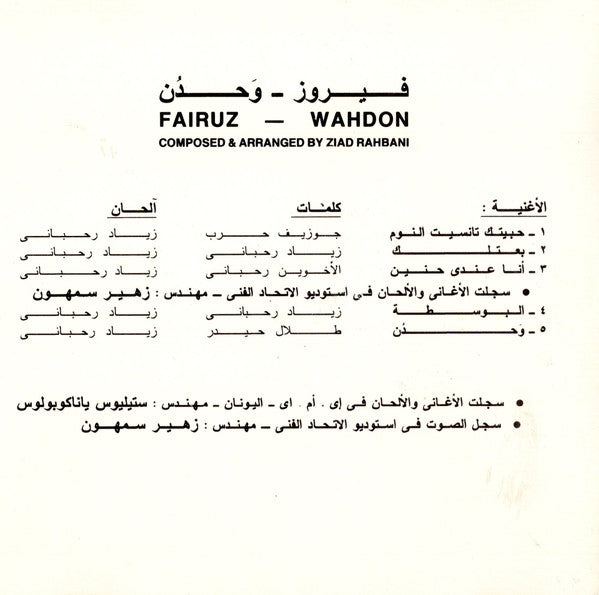 فيروز - وَحدُن
FAIRUZ — WAHDON
COMPOSED & ARRANGED BY ZIAD RAHBANI
الأغنية : كلمات ألحان
١ - حبيتك تانسيت النوم جوزيف حرب زياد رحبانى
٢ - بعتلك زياد رحبانى زياد رحبانى
٣ - أنا عندى حنين الأخوين رحبانى زياد رحبانى
• سجلت الأغانى والألحان فى استوديو الاتحاد الفنى - مهندس : زهير سمهون
٤ - البوسطة زياد رحبانى زياد رحبانى
٥ - وَحدُن طلال حيدر زياد رحبانى
• سجلت الأغانى والألحان فى إى . أم . اى - اليونان - مهندس : ستيليوس ياناكوبولوس
• سجل الصوت فى استوديو الاتحاد الفنى - مهندس : زهير سمهون